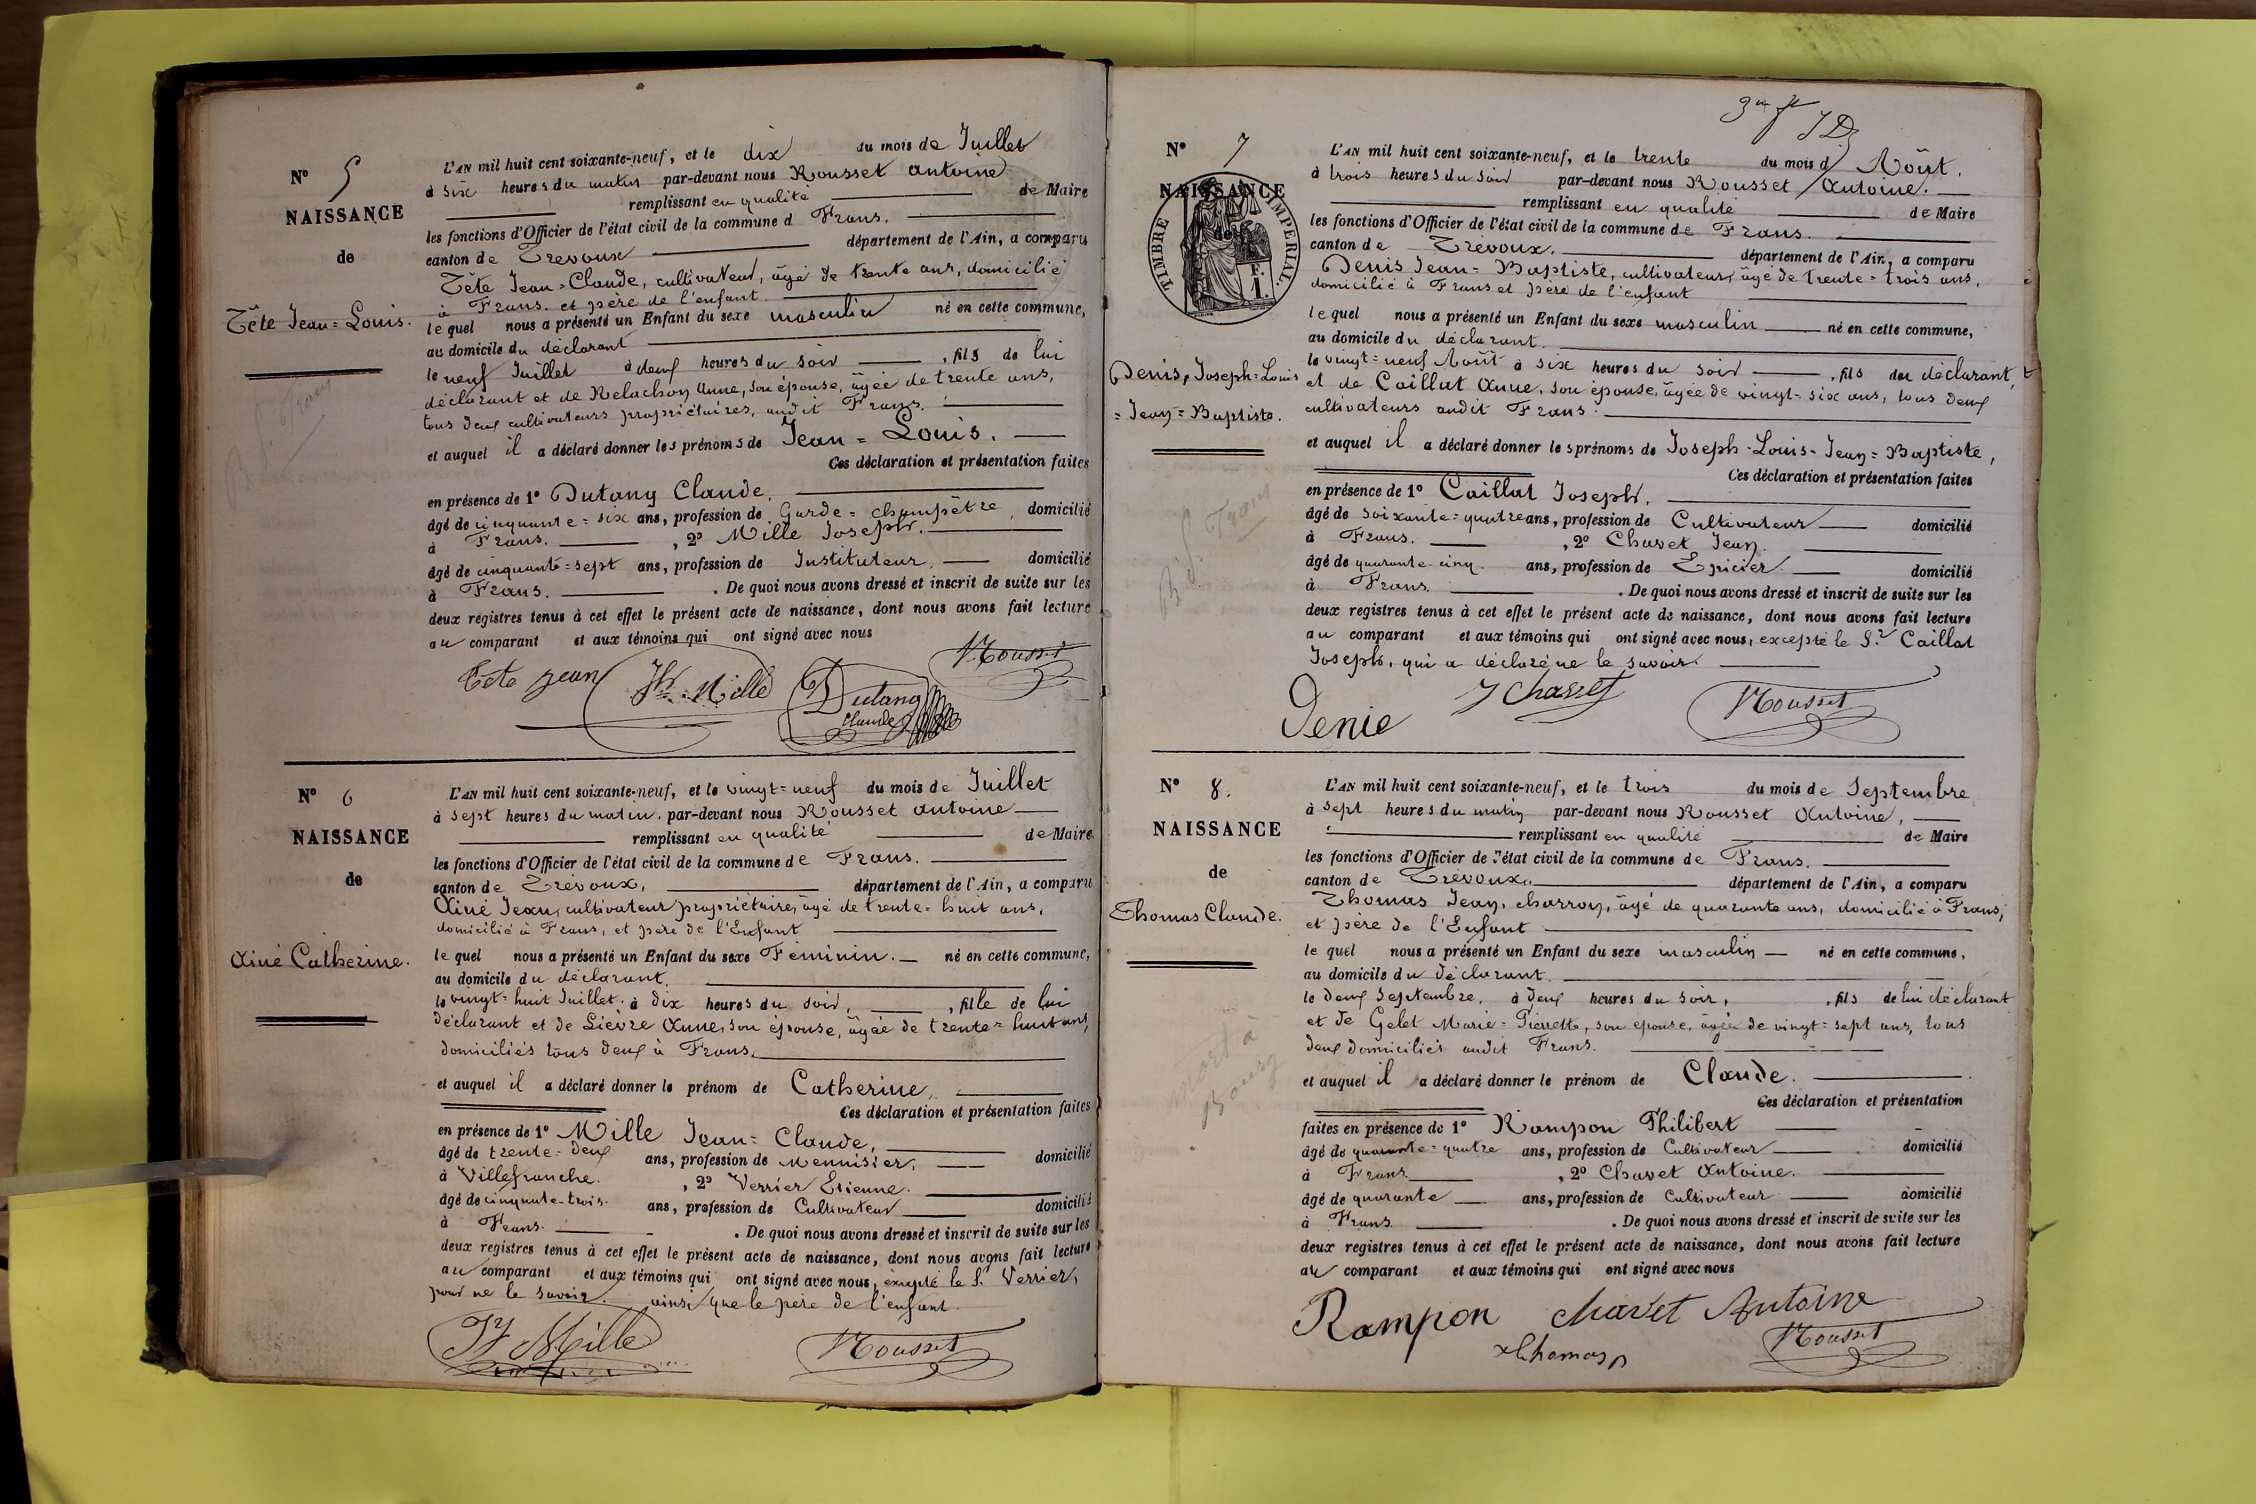 N° 5
NAISSANCE
de
Tête Jean=Louis.
L'AN mil huit cent soixante-neuf, et le dix du mois de Juillet
à six heures du matin par-devant nous Rousset antoine
remplissant en qualité de Maire
les fonctions d'Officier de l'état civil de la commune d Frans.
canton de Trévoux département de l'Ain, a comparu
Tête Jean=Claude, cultivateur, âgé de trente ans, domicilié
à Frans. et père de l'enfant
lequel nous a présenté un Enfant du sexe masculin né en cette commune,
au domicile du déclarant
le neuf Juillet à deux heures du soir, fils de lui
déclarant et de Relachon Anne, son épouse, âgée de trente ans,
tous deux cultivateurs propriétaires, audit Frans.
et auquel il a déclaré donner les prénoms de Jean=Louis.
Ces déclaration et présentation faites
en présence de 1° Dutang Claude,
âgé de cinquante=six ans, profession de Garde=champêtre, domicilié
à Frans., 2° Mille Joseph.
âgé de cinquante=sept ans, profession de Instituteur, domicilié
à Frans. . De quoi nous avons dressé et inscrit de suite sur les
deux registres tenus à cet effet le présent acte de naissance, dont nous avons fait lecture
au comparant et aux témoins qui ont signé avec nous
Tête jean Mille Dutang Claude Rousset
N° 6
NAISSANCE
de
Ainé Catherine.
L'AN mil huit cent soixante-neuf, et le vingt=neuf du mois de Juillet
à sept heures du matin. par-devant nous Rousset antoine
remplissant en qualité de Maire
les fonctions d'Officier de l'état civil de la commune de Frans.
canton de Trévoux, département de l'Ain, a comparu
Ainé Jean, cultivateur propriétaire, âgé de trente=huit ans,
domicilié à Frans, et père de l'Enfant
lequel nous a présenté un Enfant du sexe Féminin. né en cette commune,
au domicile du déclarant.
le vingt=huit Juillet. à dix heures du soir, , fille de lui
déclarant et de Lièvre Anne, son épouse, âgée de trente=huit ans,
domiciliés tous deux à Frans.
et auquel il a déclaré donner le prénom de Catherine.
Ces déclaration et présentation faites
en présence de 1° Mille Jean=Claude,
âgé de trente=deux ans, profession de Menuisier, domicilié
à Villefranche. , 2° Verrier Etienne.
âgé de cinquante-trois. ans, profession de Cultivateur domicilié
à Frans. . De quoi nous avons dressé et inscrit de suite sur les
deux registres tenus à cet effet le présent acte de naissance, dont nous avons fait lecture
au comparant et aux témoins qui ont signé avec nous, excepté le S. Verrier,
pour ne le savoir. ainsi que le père de l'enfant
Mille Rousset
N° 7
NAISSANCE
de
TIMBRE IMPERIAL.
Denis, Joseph=Louis
=Jean=Baptiste.
L'AN mil huit cent soixante-neuf, et le trente du mois d'Août.
à trois heures du soir par-devant nous Rousset Antoine.
remplissant en qualité de Maire
les fonctions d'Officier de l'état civil de la commune de Frans.
canton de Trévoux. département de l'Ain, a comparu
Denis Jean=Baptiste, cultivateur, âgé de trente=trois ans,
domicilié à Frans et père de l'enfant
lequel nous a présenté un Enfant du sexe masculin né en cette commune,
au domicile du déclarant.
le vingt=neuf Août à six heures du soir, fils du déclarant,
et de Caillat Anne, son épouse, âgée de vingt=six ans, tous deux
cultivateurs audit Frans.
et auquel il a déclaré donner les prénoms de Joseph-Louis-Jean=Baptiste,
Ces déclaration et présentation faites
en présence de 1° Caillat Joseph,
âgé de soixante=quatre ans, profession de Cultivateur domicilié
à Frans. , 2° Chavet Jean.
âgé de quarante-cinq ans, profession de Epicier. domicilié
à Frans. . De quoi nous avons dressé et inscrit de suite sur les
deux registres tenus à cet effet le présent acte de naissance, dont nous avons fait lecture
au comparant et aux témoins qui ont signé avec nous, excepté le S.r Caillat
Joseph, qui a déclaré ne le savoir.
Denie J Chavet Rousset
N° 8.
NAISSANCE
de
Thomas Claude.
mort à
Bourg
L'AN mil huit cent soixante-neuf, et le trois du mois de Septembre
à sept heures du matin par-devant nous Rousset Antoine,
remplissant en qualité de Maire
les fonctions d'Officier de l'état civil de la commune de Frans.
canton de Trévoux. département de l'Ain, a comparu
Thomas Jean, charron, âgé de quarante ans, domicilié à Frans,
et père de l'Enfant
lequel nous a présenté un Enfant du sexe masculin né en cette commune,
au domicile du déclarant.
le deux Septembre, à deux heures du soir, , fils de lui déclarant
et de Gelet Marie=Pierrette, son épouse, âgée de vingt=sept ans, tous
deux domiciliés audit Frans.
et auquel il a déclaré donner le prénom de Claude.
Ces déclaration et présentation
faites en présence de 1° Rampon Philibert
âgé de quarante=quatre ans, profession de Cultivateur domicilié
à Frans. , 2° Chavet Antoine.
âgé de quarante ans, profession de Cultivateur domicilié
à Frans . De quoi nous avons dressé et inscrit de suite sur les
deux registres tenus à cet effet le présent acte de naissance, dont nous avons fait lecture
au comparant et aux témoins qui ont signé avec nous
Rampon Chavet Antoine
Thomas Rousset